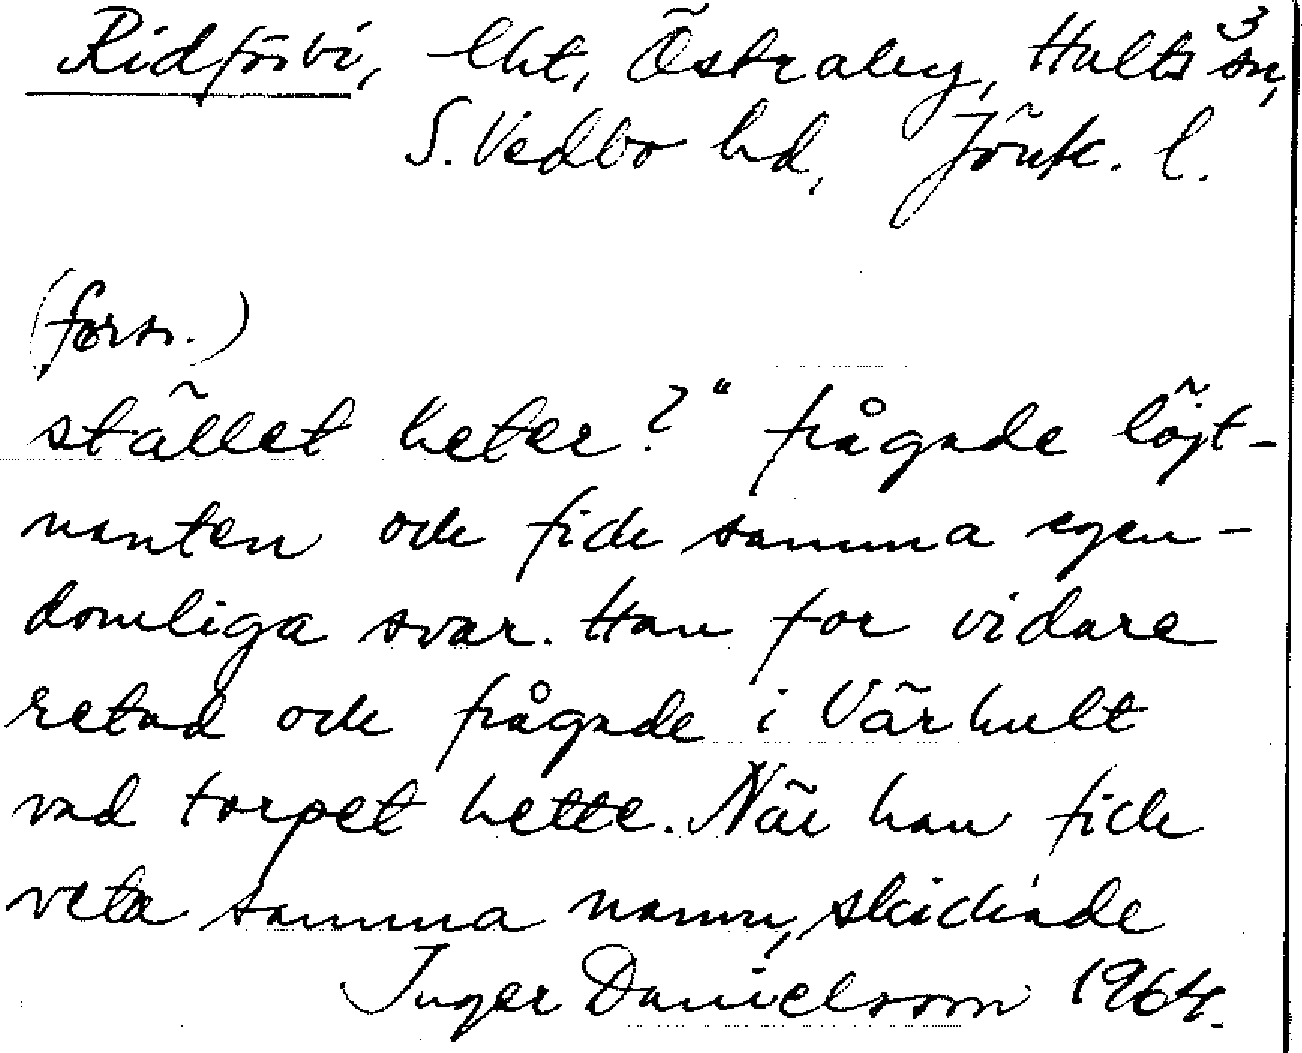 3
Ridförbi, lht, Östraby, Hults sn,
S. Vedbo hd, Jönk. l.
(forts.)
stället heter?" frågade löjt-
nanten och fick samma egen-
domliga svar. Han for vidare
retad och frågade i Värhult
vad torpet hette. När han fick
veta samma namn, skickade
Inger Danielsson 1964.